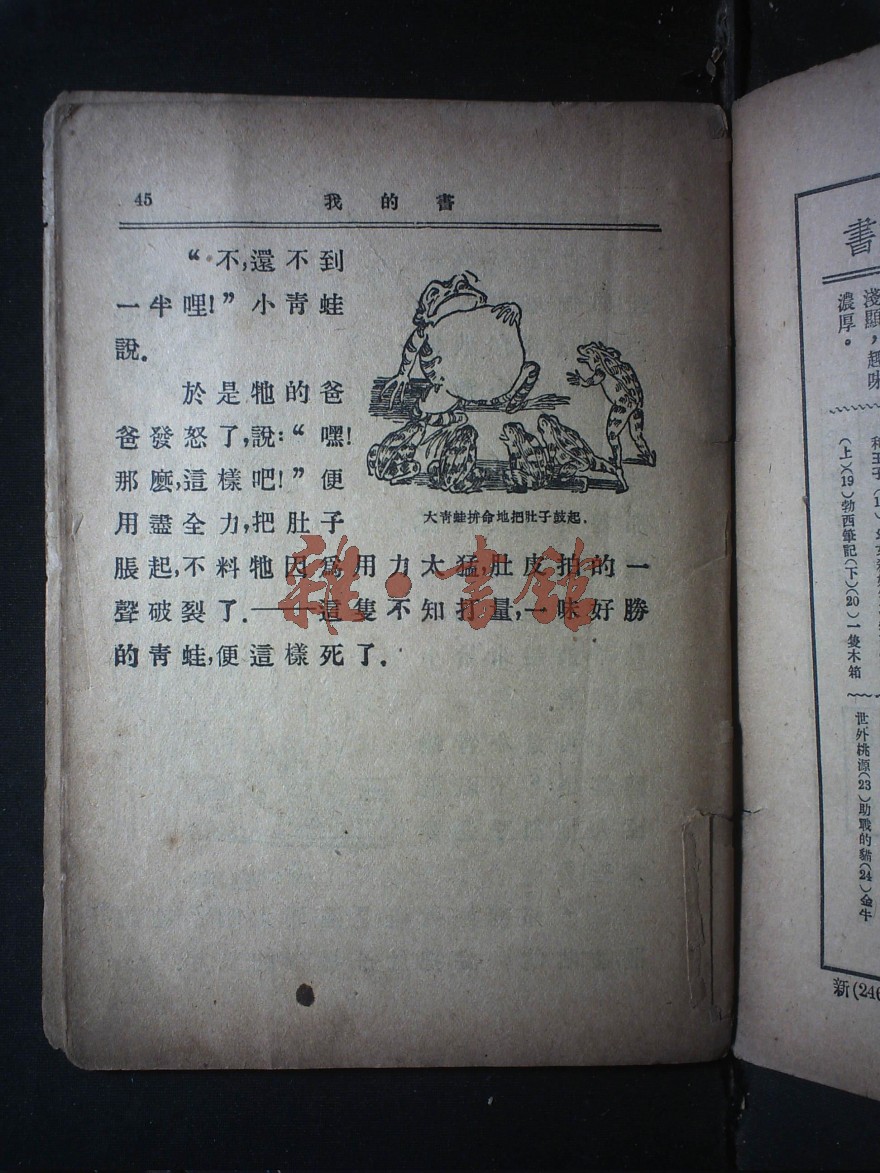 45
我的書
“不,還不到
一半哩!”小青蛙
說.
於是牠的爸
爸發怒了,說:“嘿!
那麼,這樣吧!”便
用盡全力,把肚子
脹起,不料牠因爲用力太猛,肚皮拍的一
聲破裂了.——這隻不知打量,一味好勝
的青蛙,便這樣死了.
大青蛙拚命地把肚子鼓起.
雜·書館
書
淺顯,趣味
濃厚。
(上)(19)勃西筆記(下)(20)一隻木箱
世外桃源(23)助戰的貓(24)金牛
新(246